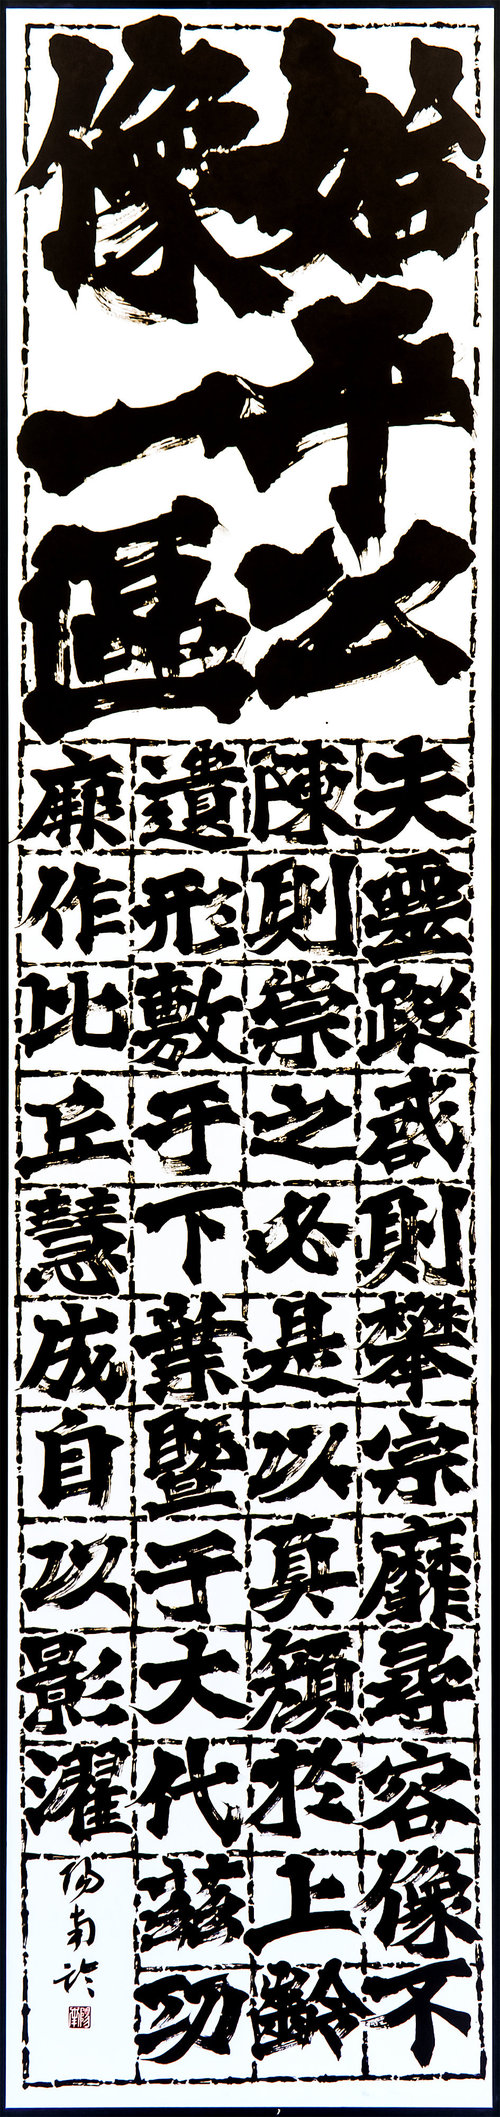 始平公
像一區
夫靈蹤啟則攀宗靡尋容像不
陳則崇之必是以真顏於上齡
遺形敷于下葉暨于大代茲功
厥作比丘慧成自以影濯
陽南